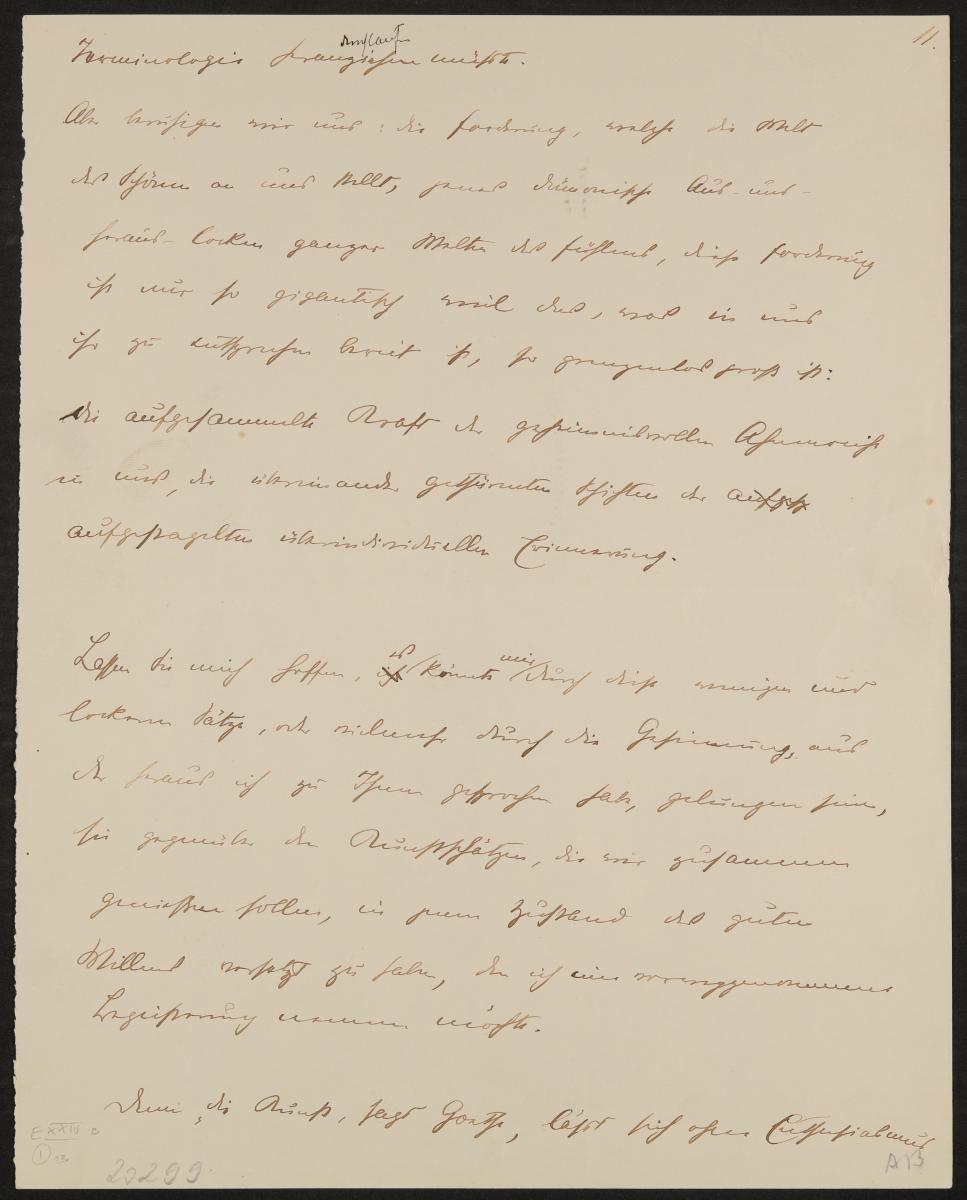 11.
Terminologie heranziehen müsste.
Aber beruhigen wir uns: die Forderung, welche die Welt
des Schönen an uns stellt, jenes dämonische Aus-uns-
heraus-locken ganzer Welten des Fühlens, diese Forderung
ist nur so gigantisch weil das, was in uns
ihr zu entsprechen bereit ist, so grenzenlos gross ist:
die aufgesammelte Kraft der geheimnisvollen Ahnenreihe
in uns, die übereinander gethürmten Schichten der aufges
aufgestapelten überindividuellen Erinnerung.
Lassen Sie mich hoffen, es könnte mir durch diese wenigen und
lockeren Sätze, oder vielmehr durch die Gesinnung, aus
der heraus ich zu Ihnen gesprochen habe, gelungen sein,
Sie gegenüber den Kunstschätzen, die wir zusammen
geniessen sollen, in jenen Zustand des guten
Willens versetzt zu haben, den ich eine vorweggenommene
Begeisterung nennen möchte.
Denn die Kunst, sagt Goethe, lässt sich ohne Enthusiasmus
E XXIV
1
20299
AB